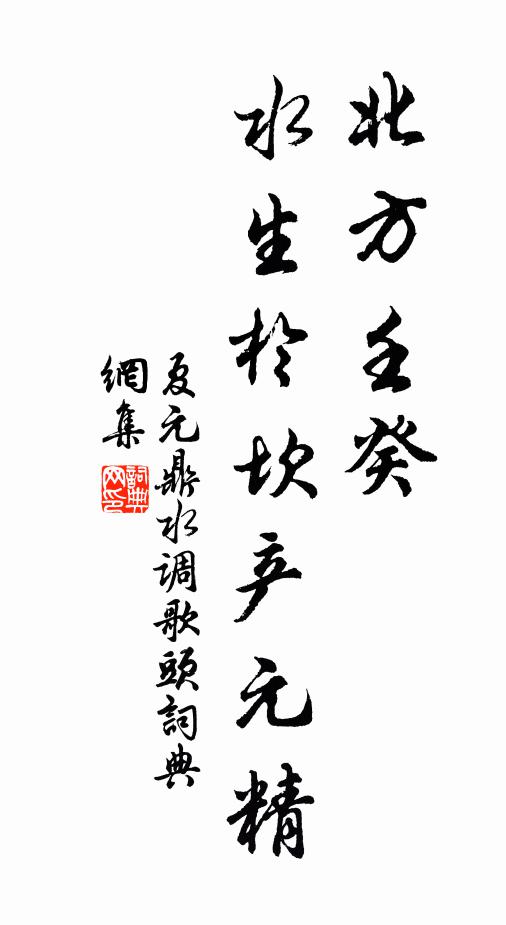 北方壬癸
水生於坎产元精
夏元鼎水调歌頭詞典
網集
詞典网印